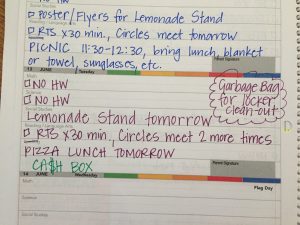 ▷Poster/Flyers for Lemonade Stand
□ RTS x30 min., Circles meet tomorrow
PICNIC 11:30-12:30, bring lunch, blanket
or towel, sunglasses, etc.
Parent Signature
13 JUNE Tuesday
Math
□ NO HW
Science
□ NO HW
Garbage Bag
for locker
clean-out
Lemonade Stand tomorrow
□ RTS x30 min, Circles meet 2 more times
PIZZA LUNCH TOMORROW
CA$H BOX
Parent Signature
14 JUNE Wednesday
Flag Day
Math
Science
Social Studies